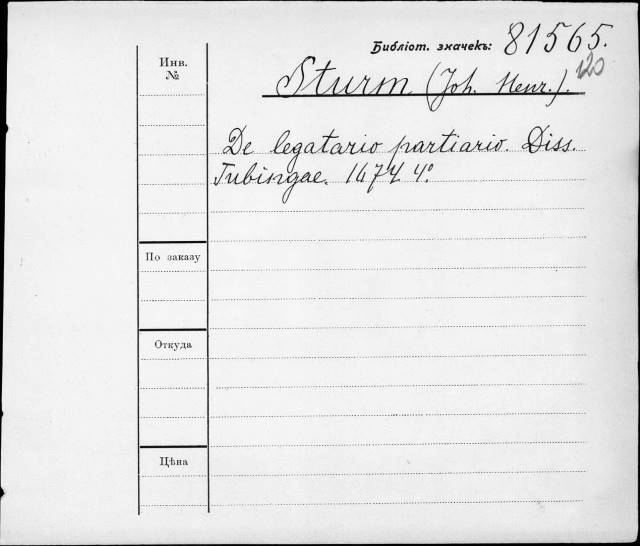 Библіот. значекъ: 81565.
120
Инв.
№
Sturm (Joh. Henr.).
De legatario partiario. Diss.
Tubingae. 1674 4°
По заказу
Откуда
Цѣна